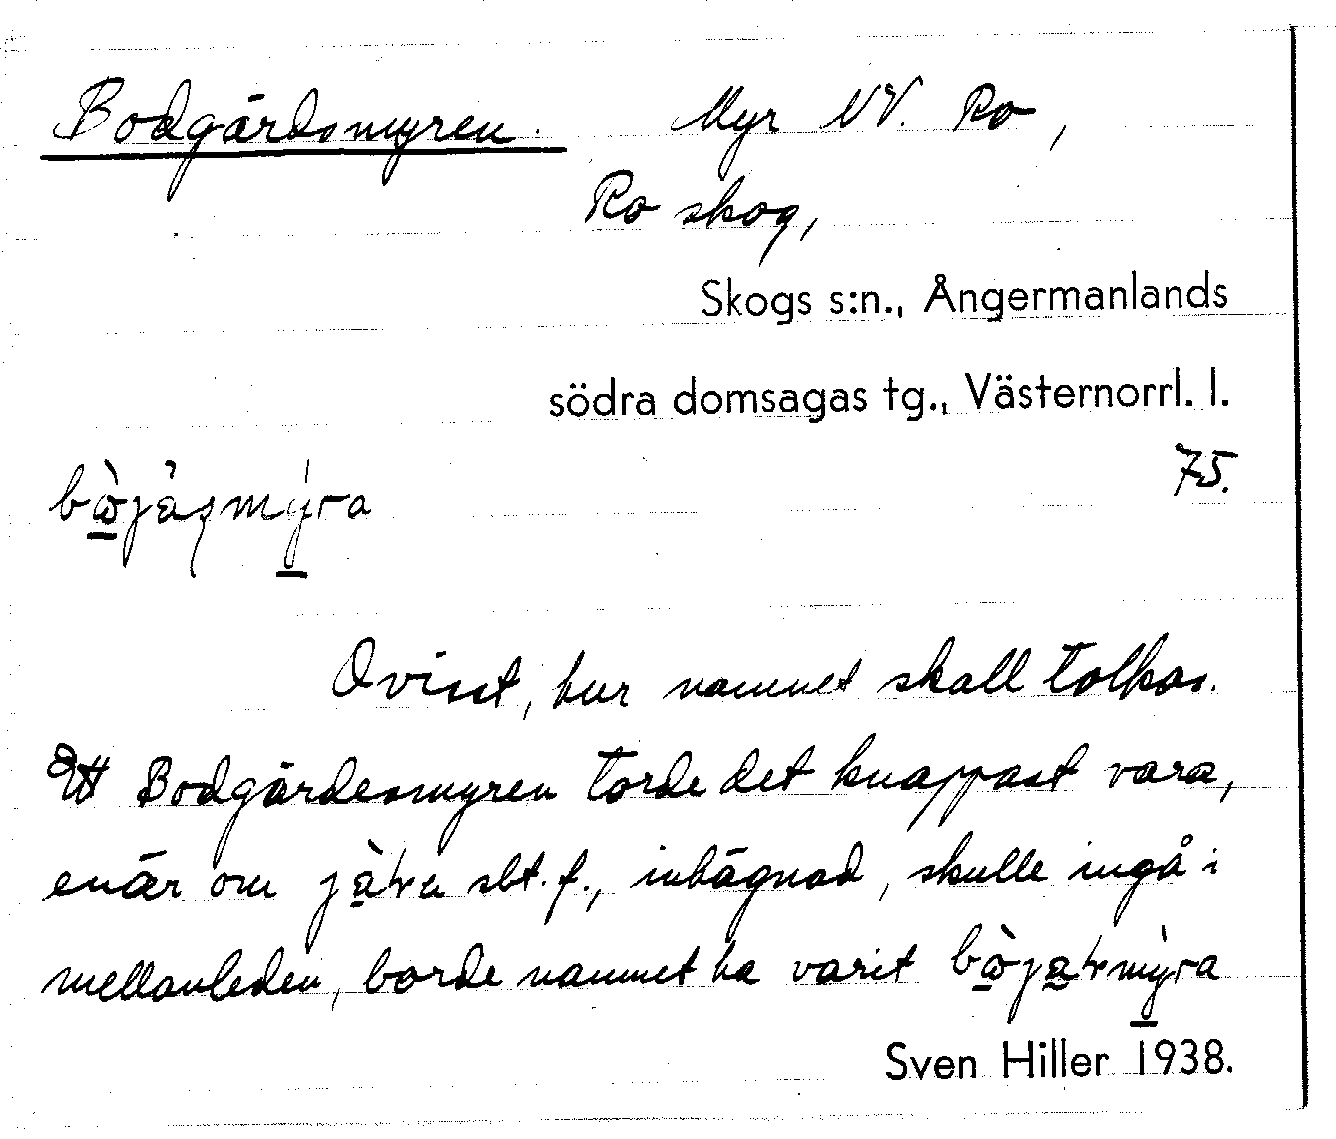 Bodgårdsmyren. Myr NV. Ro,
Ro skog,
Skogs s:n., Ångermanlands
södra domsagas tg., Västernorrl. l.
75.
Ovisst, hur namnet skall tolkas.
Ett Bodgärdesmyren torde det knappast vara,
enär om sbt. f., inhägnad, skulle ingå i
mellanleden, borde namnet ha varit
Sven Hiller 1938.